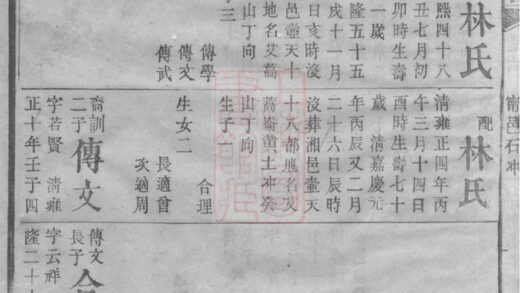 石冲
林氏
熙四十八
丑七月初
卯時生壽
一歲
隆五十五
戌十一月
日亥時沒
邑壼天十
地名艾蒿
山丁向
三
傳學
傳文
傳武
配
林氏
清雍正四年丙
午三月十四日
酉時生壽七十
歲 清嘉慶元
年丙辰又二月
二十六日辰時
沒葬湘邑壼天
十八都地名艾
蒿崙黃土冲癸
山丁向
生子一
合理
生女二
長適曾
次適周
裔訓
二子
傳文
字若賢 清雍
正十年壬子四
傳文
長子
合
字云祥
隆二十